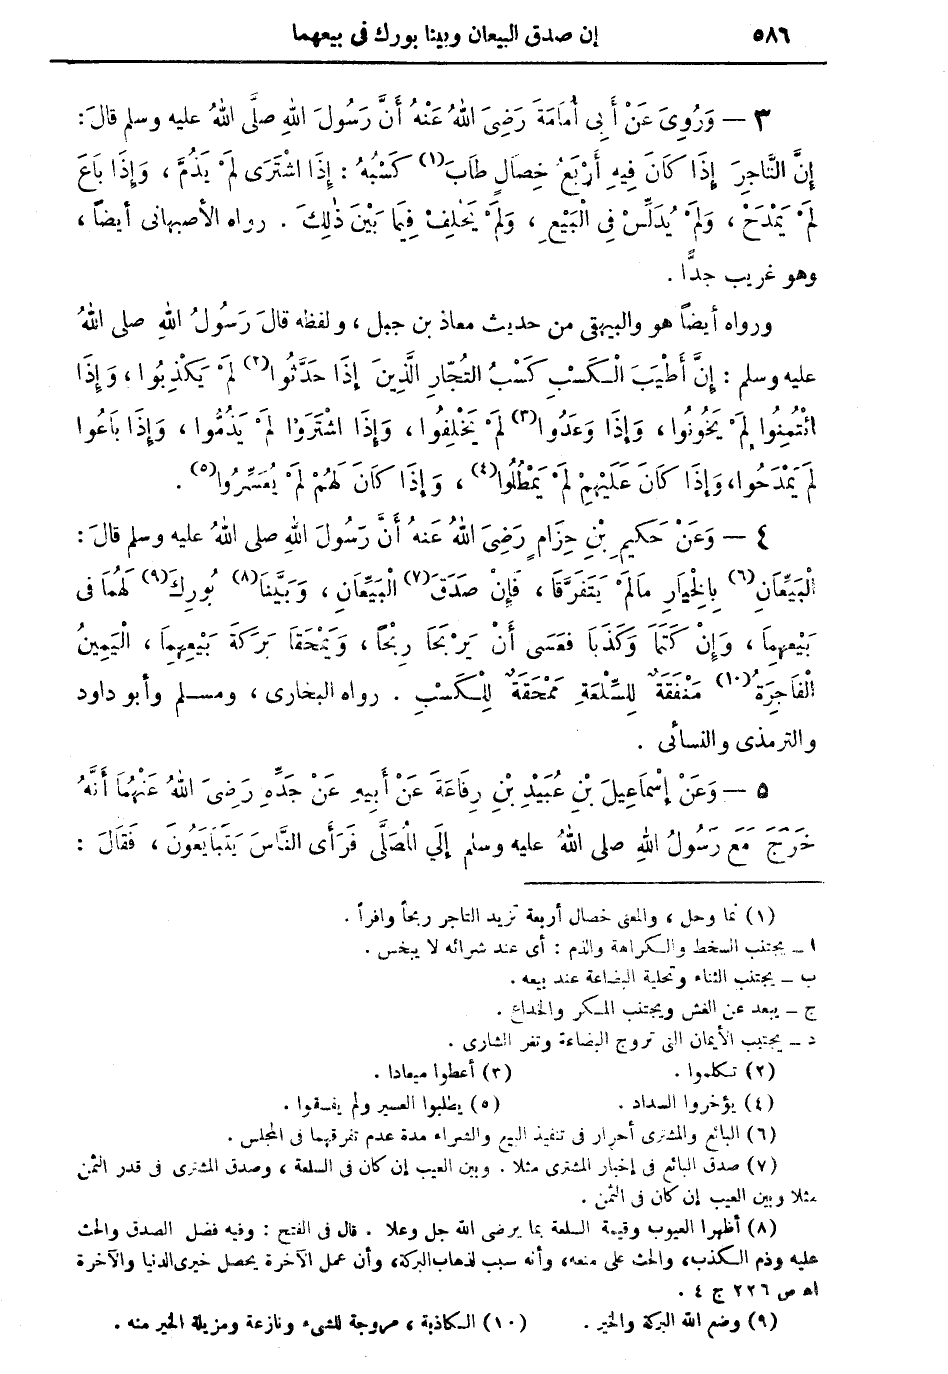 ٥٨٦ إن صدق البيعان وبينا بورك فى بيعهما
٣ — وَرُوِىَ عَنْ أَبِى أُمَامَةَ رَضِىَ اللهُ عَنْهُ أَنَّ رَسُولَ اللهِ صلَّى اللهُ عليه وسلم قالَ :
إِنَّ التَّاجِرَ إِذَا كَانَ فِيهِ أَرْبَعُ خِصَالٍ طَابَ(١) كَسْبُهُ : إِذَا اشْتَرَى لَمْ يَذُمَّ ، وَإِذَا بَاعَ
لَمْ يَمْدَحْ ، وَلَمْ يُدَلِّسْ فِى الْبَيْعِ ، وَلَمْ يَحْلِفْ فِيمَا بَيْنَ ذٰلِكَ . رواه الأصبهانى أيضاً ،
وهو غريب جدًّا .
ورواه أيضاً هو والبيهقى من حديث معاذ بن جبل ، ولفظه قالَ رَسُولُ اللهِ صلى اللهُ
عليه وسلم : إِنَّ أَطْيَبَ الْكَسْبِ كَسْبُ التُّجَّارِ الَّذِينَ إِذَا حَدَّثُوا(٢) لَمْ يَكْذِبُوا ، وَإِذَا
ائْتُمِنُوا لَمْ يَخُونُوا ، وَإِذَا وَعَدُوا(٣) لَمْ يَخْلِفُوا ، وَإِذَا اشْتَرَوْا لَمْ يَذُمُّوا ، وَإِذَا بَاعُوا
لَمْ يَمْدَحُوا ، وَإِذَا كَانَ عَلَيْهِمْ لَمْ يَمْطُلُوا(٤) ، وَإِذَا كَانَ لَهُمْ لَمْ يُعَسِّرُوا(٥) .
٤ — وَعَنْ حَكِيمِ بْنِ حِزَامٍ رَضِىَ اللهُ عَنهُ أَنَّ رَسُولَ اللهِ صلى اللهُ عليه وسلم قالَ :
الْبَيِّعَانِ(٦) بِالْخِيَارِ مَالَمْ يَتَفَرَّقَا ، فَإِنْ صَدَقَ(٧) الْبَيِّعَانِ ، وَبَيَّنَا(٨) بُورِكَ(٩) لَهُمَا فى
بَيْعِهِمَا ، وَإِنْ كَتَمَا وَكَذَبَا فَعَسَى أَنْ يَرْبَحَا رِبْحًا ، وَيَمْحَقَا بَرَكَةَ بَيْعِهِمَا ، الْيَمِينُ
الْفَاجِرَةُ(١٠) مَنْفَقَةٌ لِلسِّلْعَةِ مَمْحَقَةٌ لِلْكَسْبِ . رواه البخارى ، ومسلم وأبو داود
والترمذى والنسائى .
٥ — وَعَنْ إِسْمَاعِيلَ بْنِ عُبَيْدِ بْنِ رِفَاعَةَ عَنْ أَبِيهِ عَنْ جَدِّهِ رَضِىَ اللهُ عَنْهُمَا أَنَّهُ
خَرَجَ مَعَ رَسُولُ اللهِ صلى اللهُ عليه وسلم إِلَي الْمُصَلَّى فَرَأَى النَّاسَ يَتَبَايَعُونَ ، فَقَالَ :
(١) نما وحل ، والمعنى خصال أربعة تزيد التاجر ربحاً وافراً .
ا – يجتنب السخط والكراهة والذم : أى عند شرائه لا يبخس .
ب – يجتنب الثناء وتحلية البضاعة عند بيعه .
ج – يبعد عن الغش ويجتنب المكر والخداع .
د – يجتنب الأيمان التى تروج البضاعة وتغر الشارى .
(٢) تكلموا . (٣) أعطوا ميعادا .
(٤) يؤخروا السداد . (٥) يطلبوا العسير ولم يفسقوا .
(٦) البائع والمشترى أحرار فى تنفيذ البيع والشراء مدة عدم تفرقهما فى المجلس .
(٧) صدق البائع فى إخبار المشترى مثلا . وبين العيب إن كان فى السلعة ، وصدق المشترى فى قدر الثمن
مثلا وبين العيب إن كان فى الثمن .
(٨) أظهرا العيوب وقيمة السلعة بما يرضى الله جل وعلا . قال فى الفتح : وفيه فضل الصدق والحث
عليه وذم الكذب، والحث على منعه، وأنه سبب لذهاب البركة، وأن عمل الآخرة يحصل خيرى الدنيا والآخرة
اه ص ٢٢٦ ج ٤ .
(٩) وضم الله البركة والخير . (١٠) الكاذبة ، مروجة للشىء ونازعة ومزيلة الخير منه .